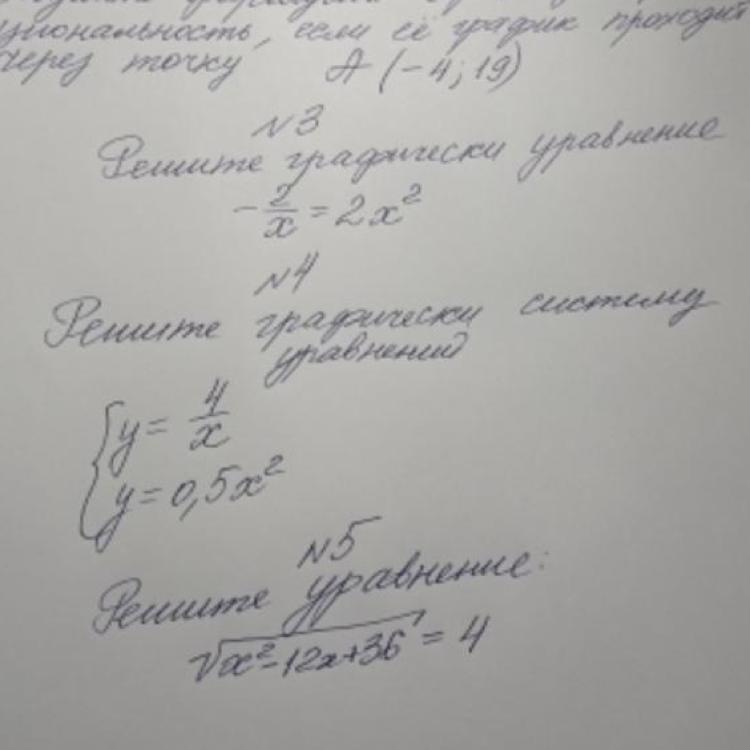 циональность, если её график проходит
через точку A (-4; 19)
№3
Решите графически уравнение
-2/x = 2x²
№4
Решите графически систему
уравнений
{ y = 4/x
y = 0,5x²
№5
Решите уравнение:
√(x²-12x+36) = 4